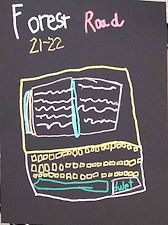 Forest Road
21-22